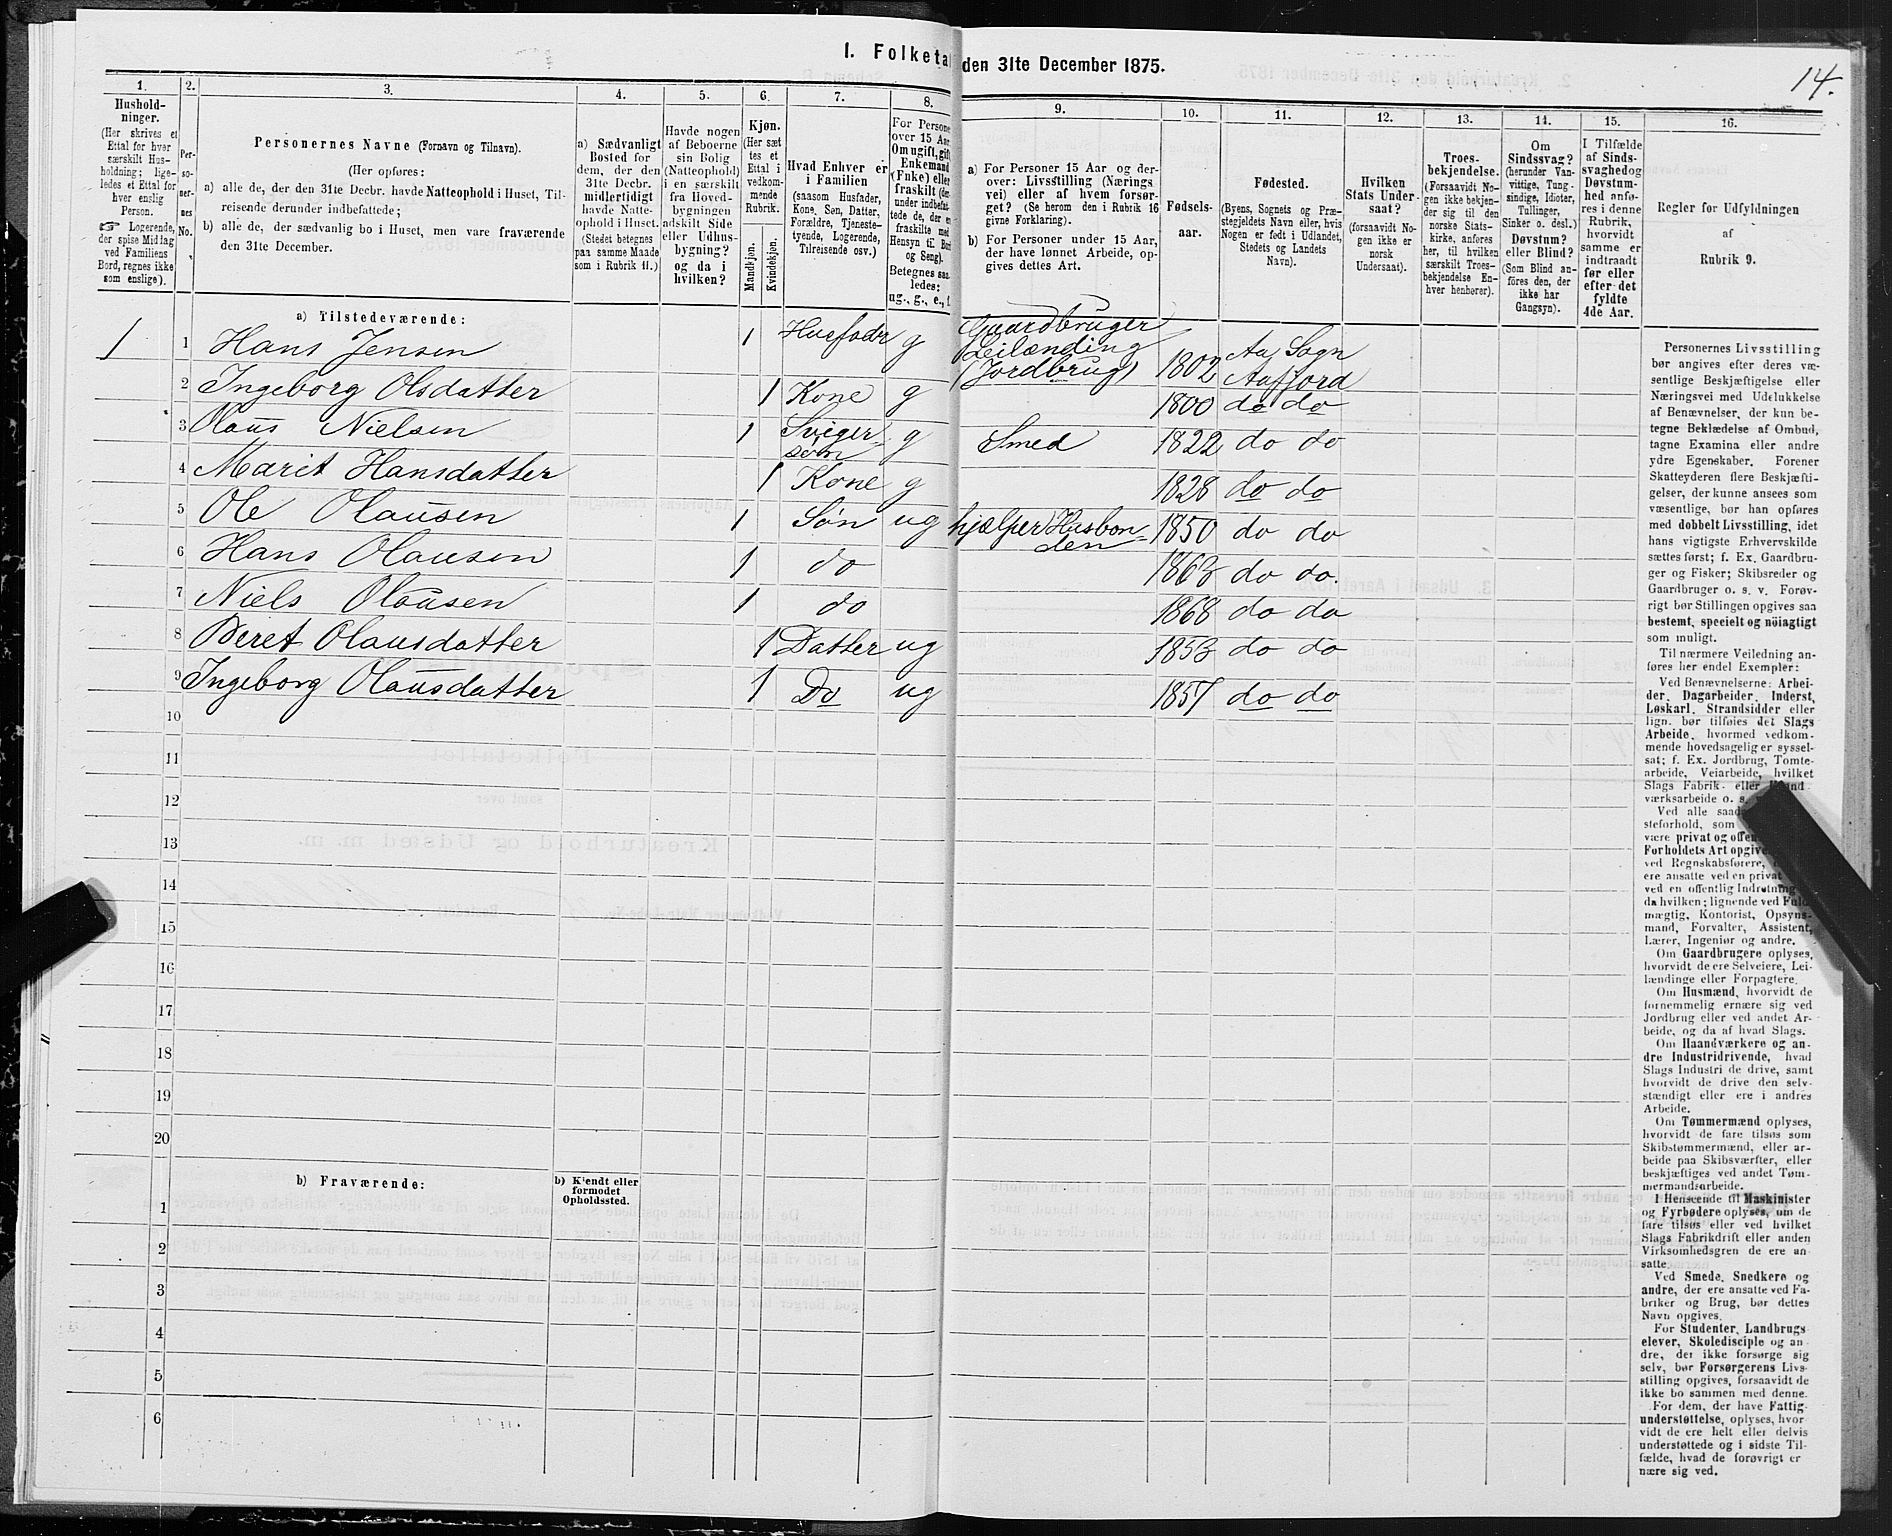 I. Folketal den 31te December 1875.
14.
1.
Hushold-
ninger.
(Her skrives et
Ettal for hver
særskilt Hus-
holdning; lige-
ledes et Ettal for
hver enslig
Person.
☞ Logerende,
der spise Middag
ved Familiens
Bord, regnes ikke
som enslige).
2.
Per-
so-
ner-
nes
No.
3.
Personernes Navne (Fornavn og Tilnavn).
(Her opføres:
a) alle de, der den 31te Decbr. havde Natteophold i Huset, Til-
reisende derunder indbefattede;
b) alle de, der sædvanlig bo i Huset, men vare fraværende
den 31te December.
4.
a) Sædvanligt
Bosted for
dem, der den
31te Decbr.
midlertidigt
havde Natte-
ophold i Huset.
(Stedet betegnes
paa samme Maade
som i Rubrik 11.)
5.
Havde nogen
af Beboerne
sin Bolig
(Natteophold)
i en særskilt
fra Hoved-
bygningen
adskilt Side
eller Udhus-
bygning?
og da i
hvilken?
6.
Kjøn.
(Her sæt
tes et
Ettal i
vedkom-
mende
Rubrik.
Mandkjøn.
Kvindekjøn.
7.
Hvad Enhver er
i Familien
(saasom Husfader,
Kone, Søn, Datter,
Forældre, Tjeneste-
tyende, Logerende,
Tilreisende osv.)
8.
For Persone
over 15 Aar
Om ugift, gift
Enkemand
(Enke) eller
fraskilt (der
under indbefat-
tede de, der er
fraskilte med
Hensyn til Bord
og Seng).
Betegnes saa
ledes:
ug., g., e., f.
9.
a) For Personer 15 Aar og der-
over: Livsstilling (Nærings
vei) eller af hvem forsør-
get? (Se herom den i Rubrik 16
givne Forklaring).
b) For Personer under 15 Aar,
der have lønnet Arbeide, op-
gives dettes Art.
10.
Fødsels-
aar.
11.
Fødested.
(Byens, Sognets og Præ-
stegjeldets Navn eller, hvis
Nogen er født i Udlandet,
Stedets og Landets
Navn).
12.
Hvilken
Stats Under-
saat?
(forsaavidt No-
gen ikke er
norsk
Undersaat).
13.
Troes-
bekjendelse.
(Forsaavidt No-
gen ikke bekjen-
der sig til den
norske Stats-
kirke, anføres
her, til hvilken
særskilt Troes-
bekjendelse En-
hver henhører).
14.
Om
Sindssvag?
(herunder Van-
vittige, Tung-
sindige, Idioter,
Tullinger,
Sinker o. desl.)
Døvstum?
eller Blind?
(Som Blind an-
føres den, der
ikke har
Gangsyn).
15.
I Tilfælde
af Sinds-
svaghed og
Døvstum-
hed anfø-
res i denne
Rubrik,
hvorvidt
samme er
indtraadt
før eller
efter det
fyldte
4de Aar.
16.
Regler for Udfyldningen
af
Rubrik 9.
a) Tilstedeværende:
1 1 Hans Jensen 1 Husfader g Gaardbruger
Leilænding
(Jordbrug) 1802 Aa Sogn
Aafjord
2 Ingeborg Olsdatter 1 Kone g 1800 do do
3 Olaus Nielsen 1 Sviger-
søn g Smed 1822 do do
4 Marit Hansdatter 1 Kone g 1828 do do
5 Ole Olausen 1 Søn ug hjælper Husbon-
den 1850 do do
6 Hans Olausen 1 do 1863 do do.
7 Niels Olausen 1 do 1868 do do
8 Beret Olausdatter 1 Datter ug 1853 do do
9 Ingeborg Olausdatter 1 Do ug 1857 do do
10
11
12
13
14
15
16
17
18
19
20
b) Fraværende:
b) Kjendt eller
formodet
Opholdssted.
1
2
3
4
5
6
Personernes Livsstilling
bør angives efter deres væ-
sentlige Beskjæftigelse eller
Næringsvei med Udelukkelse
af Benævnelser, der kun be-
tegne Beklædelse af Ombud,
tagne Examina eller andre
ydre Egenskaber. Forener
Skatteyderen flere Beskjæfti-
gelser, der kunne ansees som
væsentlige, bør han opføres
med dobbelt Livsstilling, idet
hans vigtigste Erhvervskilde
sættes først; f. Ex. Gaardbru-
ger og Fisker; Skibsreder og
Gaardbruger o. s. v. Forøv-
rigt bør Stillingen opgives saa
bestemt, specielt og nøiagtigt
som muligt.
Til nærmere Veiledning an-
føres her endel Exempler:
Ved Benævnelserne: Arbei-
der, Dagarbeider, Inderst,
Løskarl, Strandsidder eller
lign. bør tilføies det Slags
Arbeide, hvormed vedkom-
mende hovedsagelig er syssel-
sat; f. Ex. Jordbrug, Tomte-
arbeide, Veiarbeide, hvilket
Slags Fabrik- eller
værksarbeide o. s.
Ved alle saad
steforhold, som
være privat og offen
Forholdets Art opgive
ved Regnskabsførere,
ere ansatte ved en privat
ved en offentlig Indretning
da hvilken; lignende ved Fuld
mægtig, Kontorist, Opsyns-
mand, Forvalter, Assistent,
Lærer, Ingeniør og andre.
Om Gaardbrugere oplyses,
hvorvidt de ere Selveiere, Lei-
lændinge eller Forpagtere.
Om Husmænd, hvorvidt de
fornemmelig ernære sig ved
Jordbrug eller ved andet Ar-
beide, og da af hvad Slags.
Om Haandværkere og an-
dre Industridrivende, hvad
Slags Industri de drive, samt
hvorvidt de drive den selv-
stændigt eller ere i andres
Arbeide.
Om Tømmermænd oplyses,
hvorvidt de fare tilsøs som
Skibstømmermænd, eller ar-
beide paa Skibsværfter, eller
beskjæftiges ved andet Tøm-
mermandsarbeide.
I Henseende til Maskinister
og Fyrbødere oplyses, om de
fare tilsøs eller ved hvilket
Slags Fabrikdrift eller anden
Virksomhedsgren de ere an-
satte.
Ved Smede, Snedkere og
andre, der ere ansatte ved Fa-
briker og Brug, bør dettes
Navn opgives.
For Studenter, Landbrugs
elever, Skoledisciple og an-
dre, der ikke forsørge sig
selv, bør Forsørgerens Livs-
stilling opgives, forsaavidt de
ikke bo sammen med denne.
For dem, der have Fattig-
understøttelse, oplyses, hvor-
vidt de ere helt eller delvis
understøttede og i sidste Til-
fælde, hvad de forøvrigt er
nære sig ved.